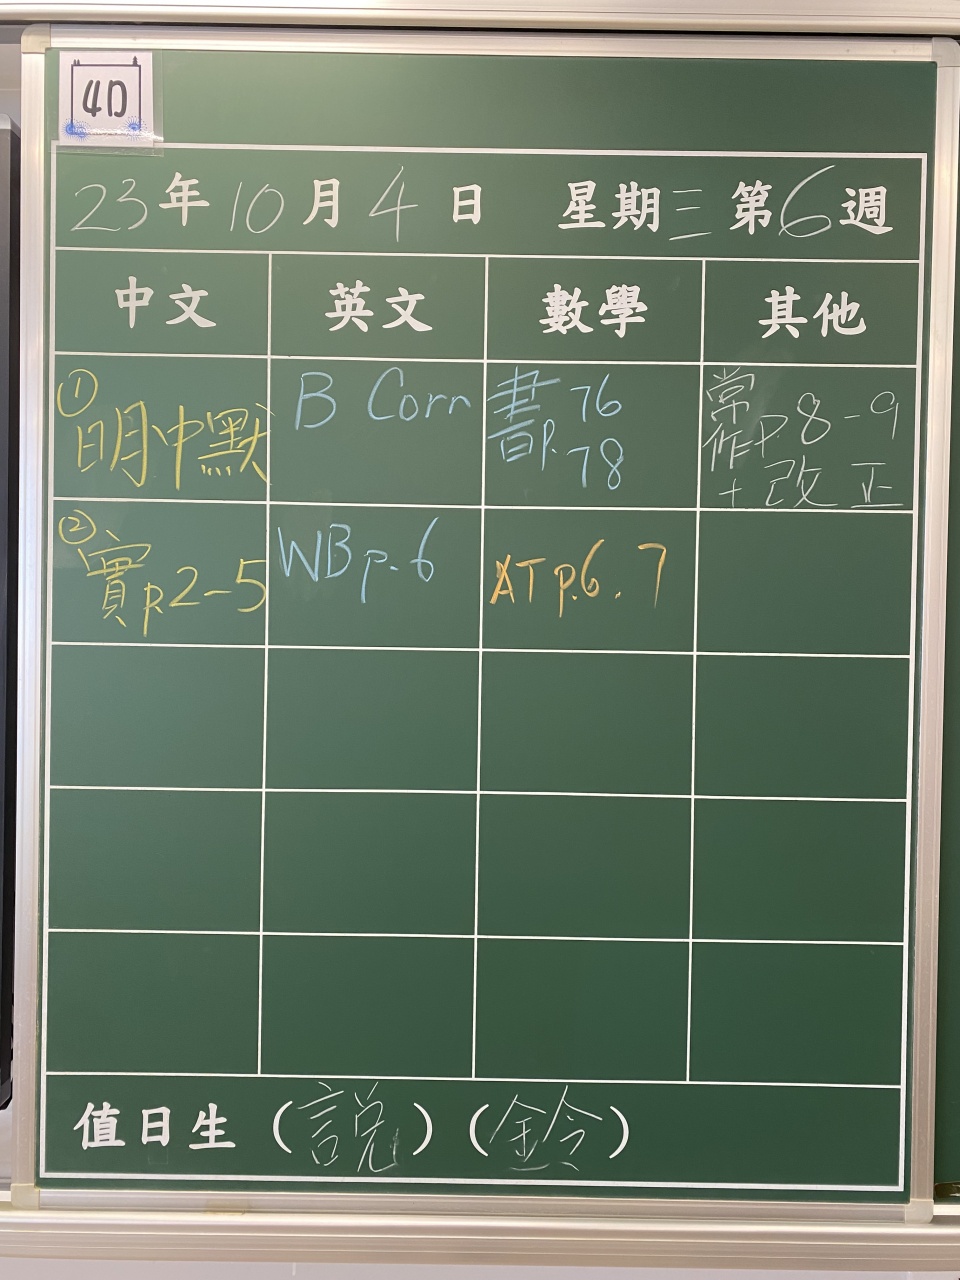 4D
23年10月4日 星期三第6週
中文 英文 數學 其他
① 明中默
B Corn
書p. 76
78
常作p8-9
+改正
② 實p.2-5
WB p.6
AT p.6.7
值日生(說)(鈴)